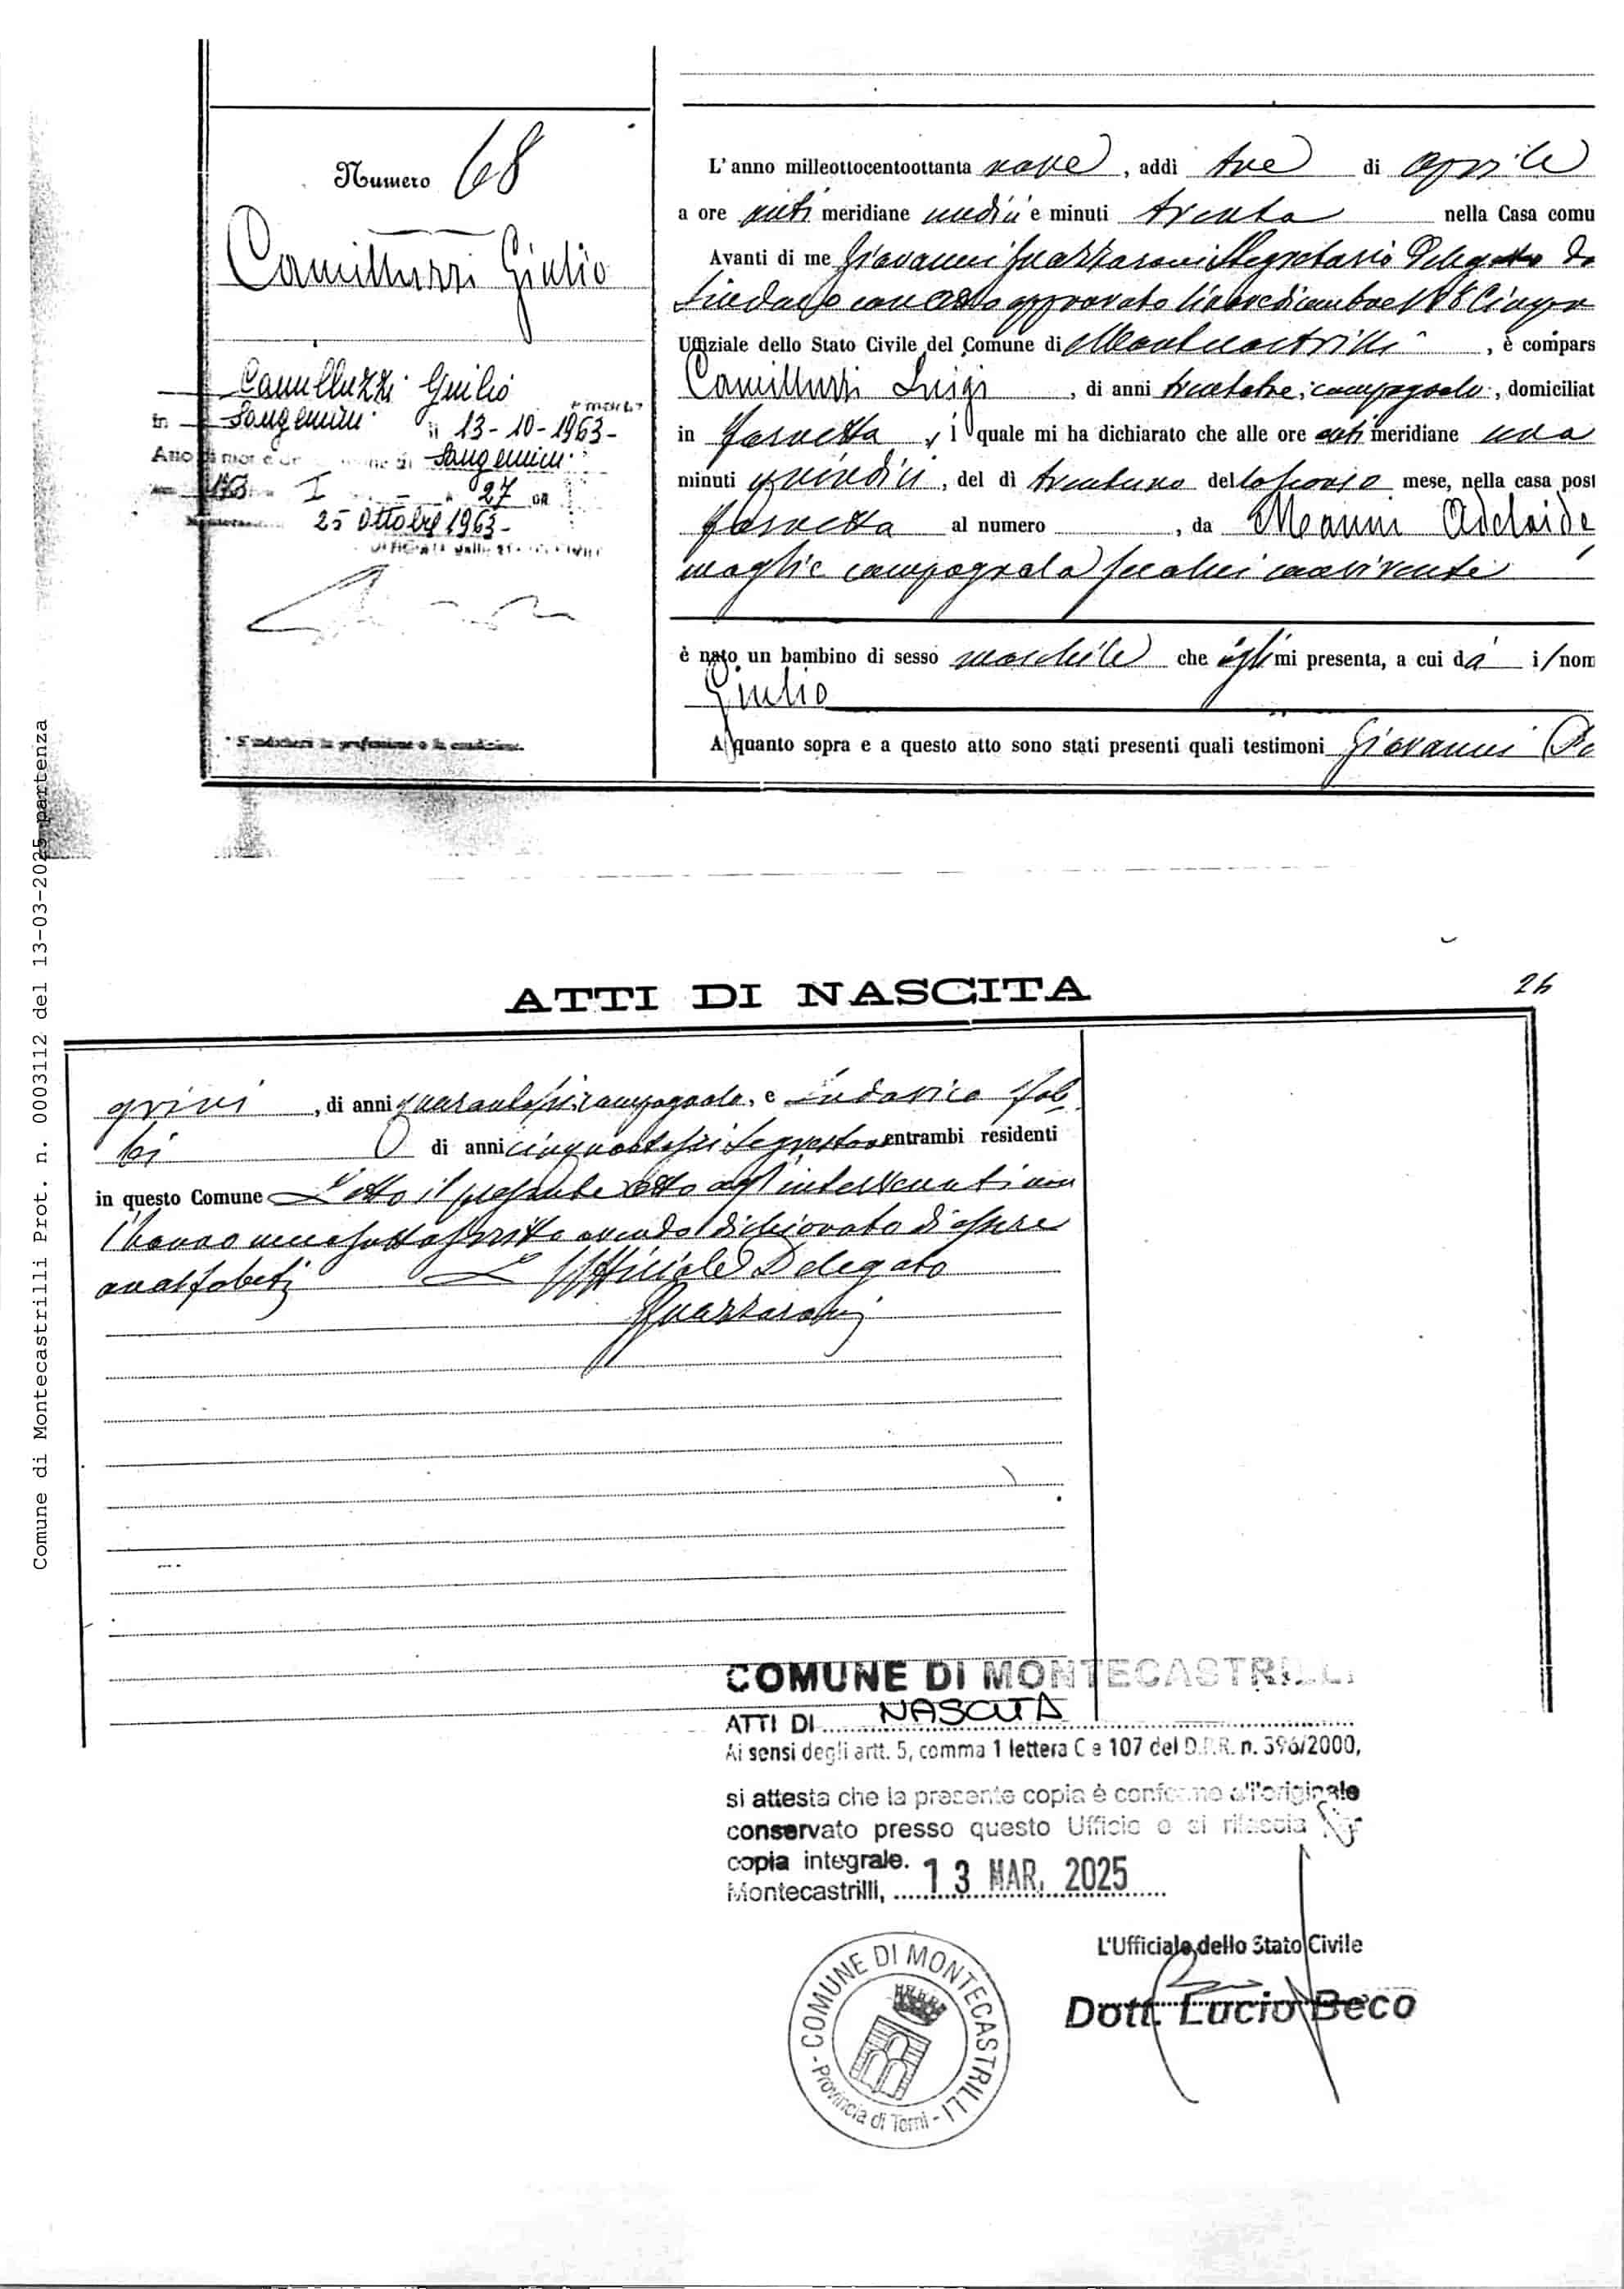 Numero 68
Camilluzzi Giulio
Camilluzzi Giulio
è morto
in Sangemini il 13-10-1963-
Atto di mor Sangemini
173 I 27
25 Ottobre 1963-
UFFICIALE dello STATO CIVILE
* S'indicherà la professione o la condizione.
L'anno milleottocentoottanta nove, addì tre di aprile
a ore anti meridiane undici e minuti trenta nella Casa comu
Avanti di me Giovanni Quazzaroni Segretario Delegato da
Sindaco con atto approvato
Uffiziale dello Stato Civile del Comune di Montecastrilli, è compars
Camilluzzi Luigi, di anni trentatre, campagnolo, domiciliat
in Farnetta, i quale mi ha dichiarato che alle ore anti meridiane una
minuti quindici, del dì trentuno dello scorso mese, nella casa post
Farnetta al numero , da Meanni Adelaide
moglie campagnola seco lui convivente
è nato un bambino di sesso maschile che egli mi presenta, a cui dà i/nom
Giulio
A quanto sopra e a questo atto sono stati presenti quali testimoni Giovanni Pe
Comune di Montecastrilli Prot. n. 0003112 del 13-03-2025 partenza
ATTI DI NASCITA
26
grini, di anni quarantasei, campagnolo, e Ludovico Fab
bi di anni cinquantasei entrambi residenti
in questo Comune Letto il presente atto agl'intervenuti non
l'hanno meco sottoscritto avendo dichiarato di essere
analfabeti L'Ufficiale Delegato
Quazzaroni
COMUNE DI MONTECASTRILLI
ATTI DI NASCITA
Ai sensi degli artt. 5, comma 1 lettera C e 107 del D.P.R. n. 396/2000,
si attesta che la presente copia è conforme all'originale
conservato presso questo Ufficio e si rilascia per
copia integrale.
Montecastrilli, 13 MAR. 2025
L'Ufficiale dello Stato Civile
Dott. Lucio Beco
COMUNE DI MONTECASTRILLI
- Provincia di Terni -